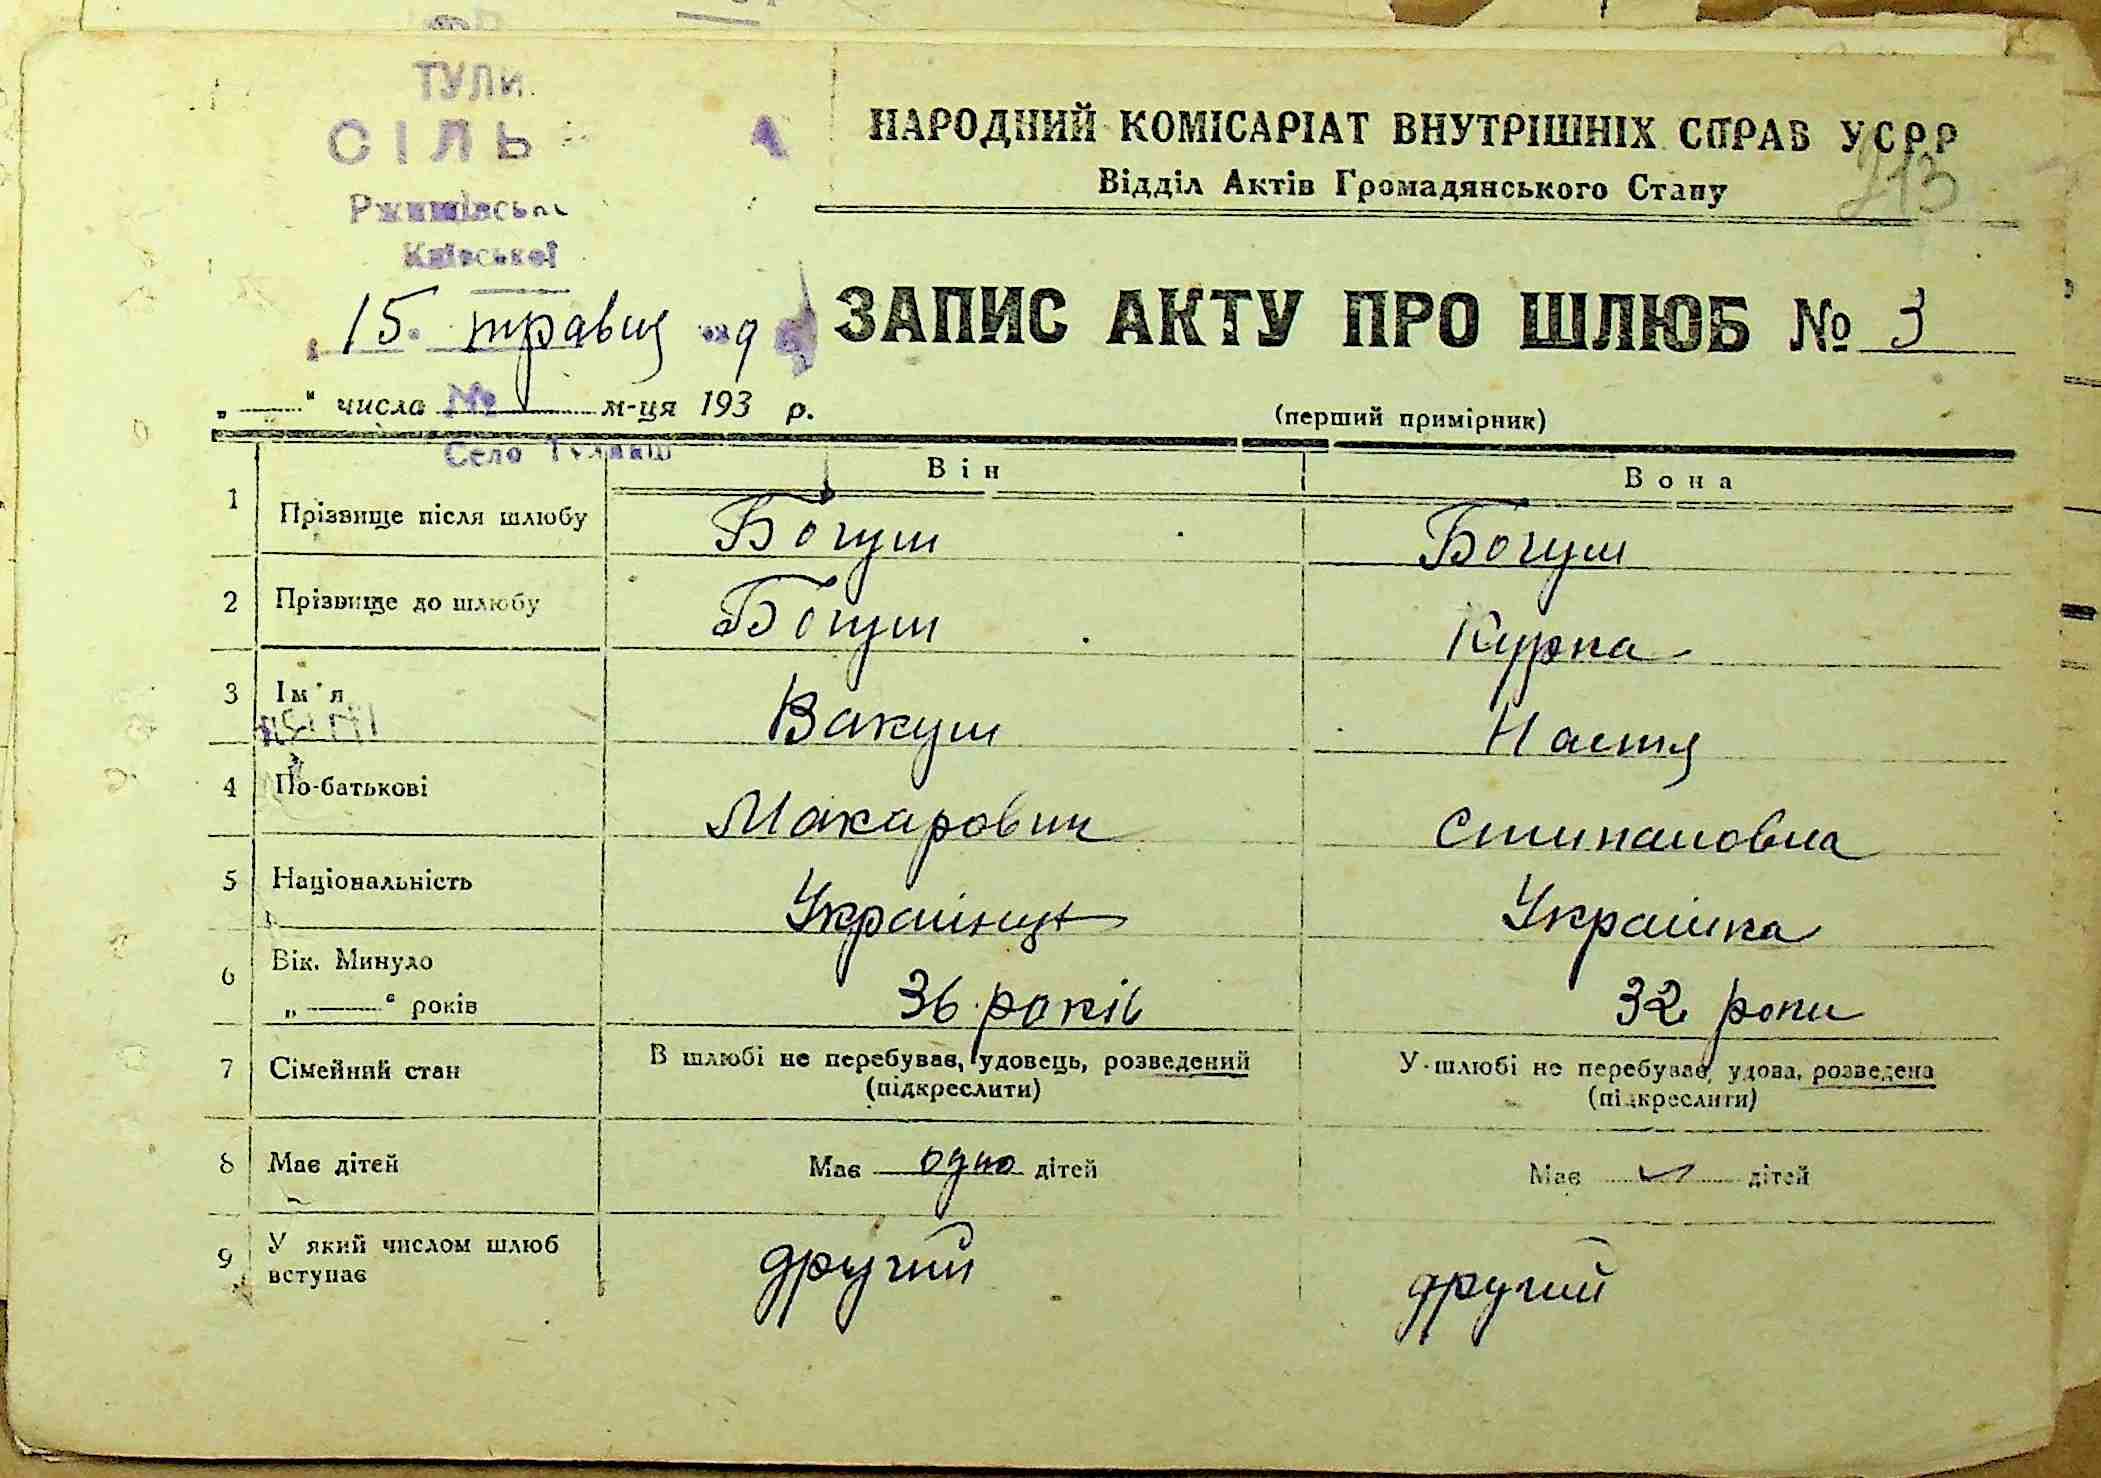 ТУЛИ
СІЛЬ
Ржищівськ
Київської
НАРОДНИЙ КОМІСАРІАТ ВНУТРІШНІХ СПРАВ УСРР
Відділ Актів Громадянського Стану
213
15. травня
ЗАПИС АКТУ ПРО ШЛЮБ № 3
„ — “ числа № м-ця 193 р.
(перший примірник)
Село
Він Вона
1 Прізвище після шлюбу Богуш Богуш
2 Прізвище до шлюбу Богуш Курка
3 Ім'я Вакуш Настя
4 По-батькові Макарович Стипановна
5 Національність Українць Українка
6 Вік. Минуло
„ — “ років 36 років 32 роки
7 Сімейний стан В шлюбі не перебував, удовець, розведений У шлюбі не перебував, удова, розведена
(підкреслити) (підкреслити)
8 Має дітей Має одно дітей Має дітей
9 У який числом шлюб вступає другий другий